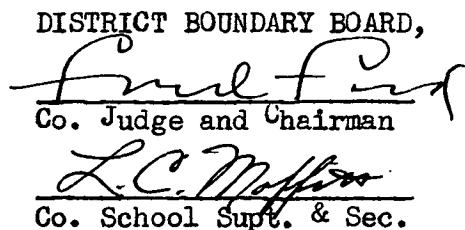 DISTRICT BOUNDARY BOARD,
Co. Judge and Chairman
L. C. Moffitt
Co. School Supt. & Sec.